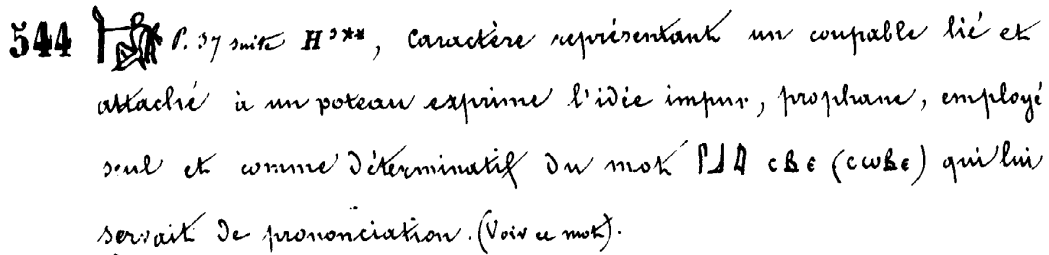 544 P. 37 suite H³**, caractère représentant un coupable lié et
attaché à un poteau exprime l'idée impur, prophane, employé
seul et comme déterminatif du mot 𓋴𓃀𓇋 ⲥⲃⲉ (ⲥⲱⲃⲉ) qui lui
servait de prononciation. (Voir ce mot).